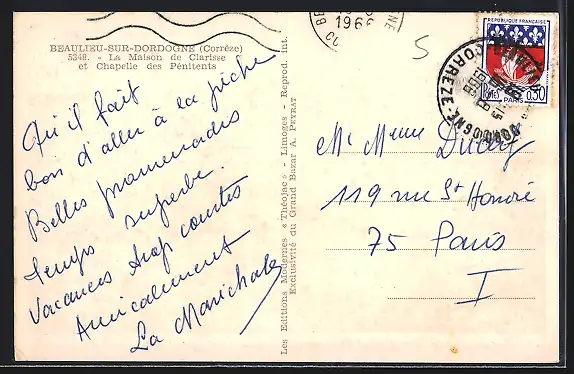 BEAULIEU-SUR-DORDOGNE (Corrèze)
5348. - La Maison de Clarisse
et Chapelle des Pénitents
Qu'il fait
bon d'aller à la pêche
Belles promenades
temps superbe.
Vacances trop courtes
Amicalement
La Marichale
Les Editions Modernes « Théojac » - Limoges - Reprod. int.
Exclusivité du Grand Bazar A. PEYRAT
1966
5
RÉPUBLIQUE FRANÇAISE
POSTES 0,30
PARIS
CORREZE
DORDOGNE
Mr Mme
119 rue St Honoré
75 Paris
I